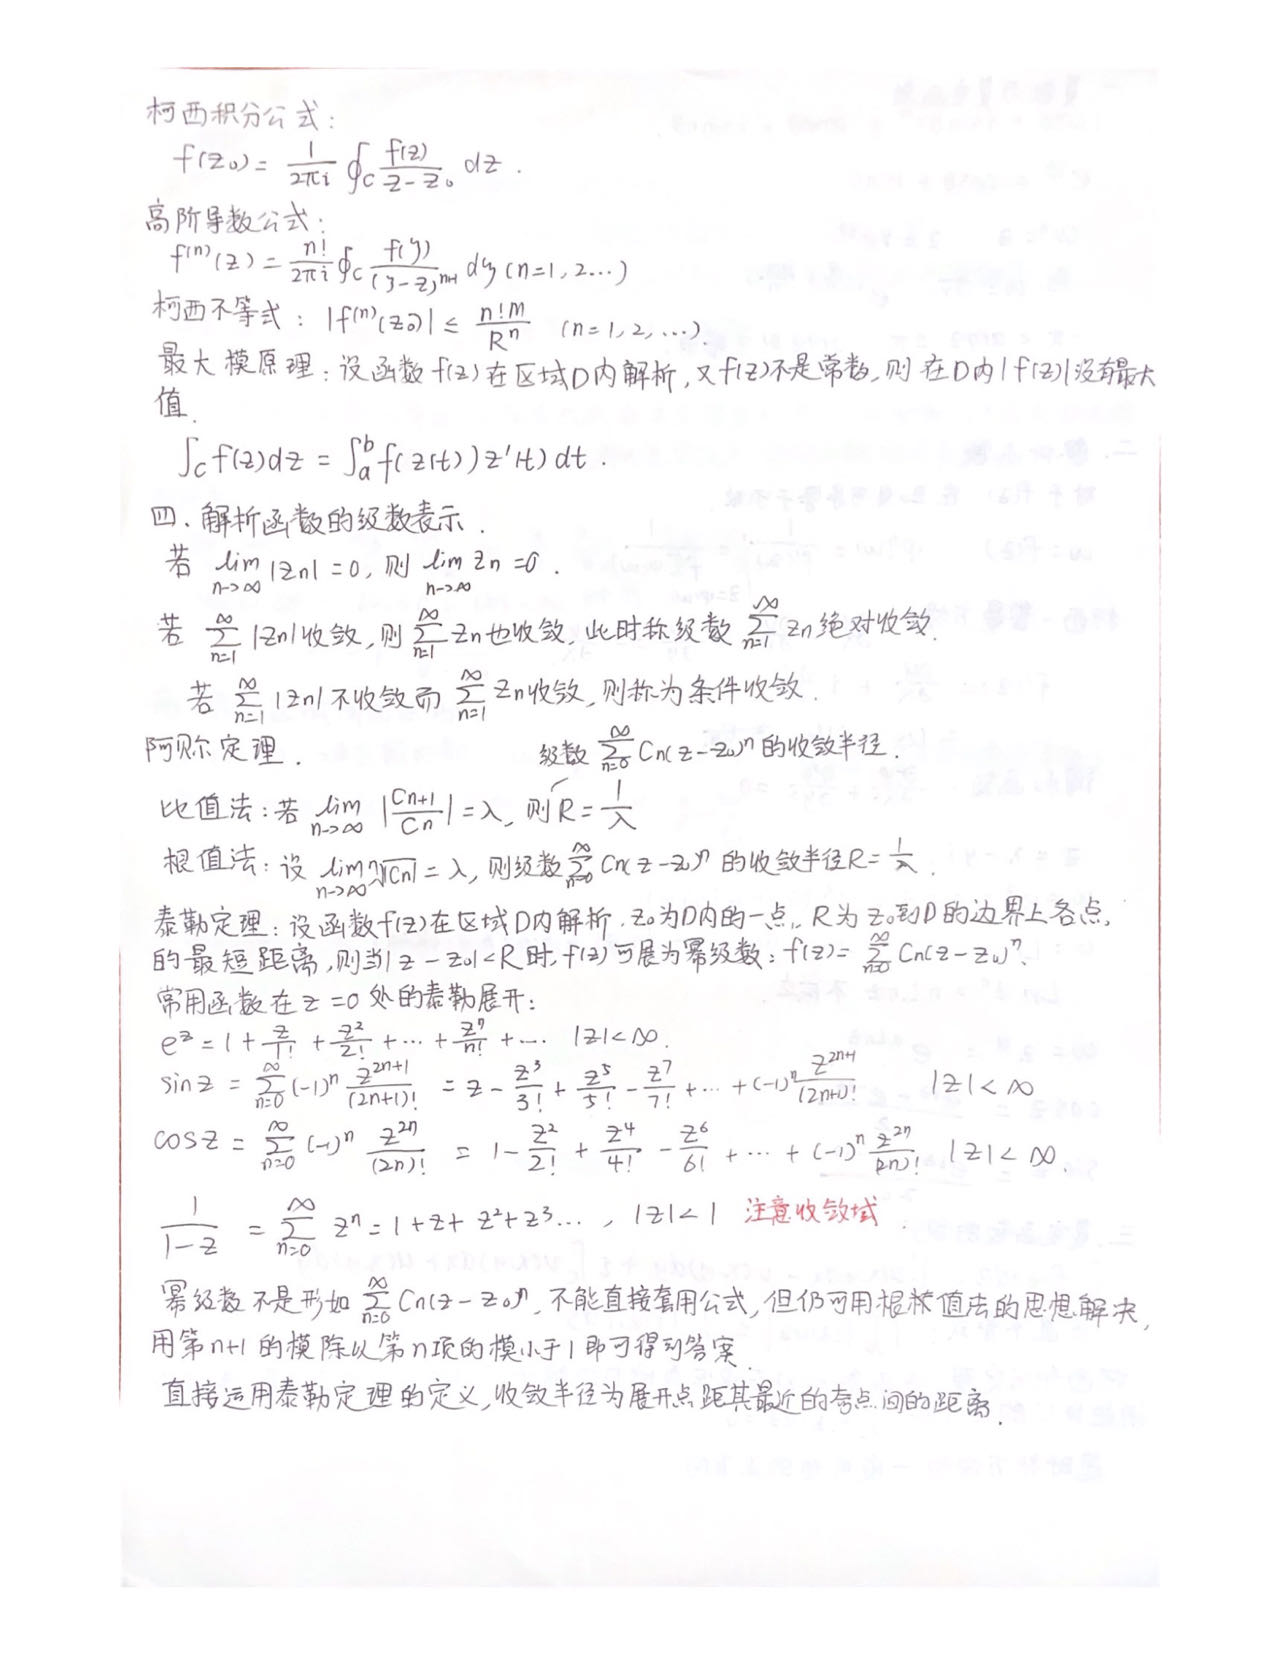 柯西积分公式:
f(z₀) = \frac{1}{2πi} ∮_C \frac{f(z)}{z-z₀} dz.
高阶导数公式:
f^{(n)}(z) = \frac{n!}{2πi} ∮_C \frac{f(ζ)}{(ζ-z)^{n+1}} dζ (n=1,2…)
柯西不等式: |f^{(n)}(z₀)| ≤ \frac{n!M}{R^n} (n=1,2,…).
最大模原理:设函数f(z)在区域D内解析,又f(z)不是常数,则在D内|f(z)|没有最大
值.
∫_C f(z)dz = ∫_a^b f(z(t))z'(t)dt.
四、解析函数的级数表示.
若 \lim_{n→∞}|zn|=0,则 \lim_{n→∞} zn=0.
若 \sum_{n=1}^{∞}|zn|收敛,则\sum_{n=1}^{∞}zn也收敛,此时称级数\sum_{n=1}^{∞}zn绝对收敛.
若 \sum_{n=1}^{∞}|zn|不收敛而\sum_{n=1}^{∞}zn收敛,则称为条件收敛.
阿贝尔定理. 级数\sum_{n=0}^{∞}Cn(z-z₀)^n的收敛半径.
比值法:若 \lim_{n→∞}|\frac{C_{n+1}}{Cn}|=λ,则R=\frac{1}{λ}
根值法:设 \lim_{n→∞}\sqrt[n]{|Cn|}=λ,则级数\sum_{n=0}^{∞}Cn(z-z₀)^n的收敛半径R=\frac{1}{λ}.
泰勒定理:设函数f(z)在区域D内解析,z₀为D内的一点,R为z₀到D的边界上各点,
的最短距离,则当|z-z₀|<R时,f(z)可展为幂级数:f(z)=\sum_{n=0}^{∞}Cn(z-z₀)^n.
常用函数在z=0处的泰勒展开:
e^z=1+\frac{z}{1!}+\frac{z^2}{2!}+…+\frac{z^n}{n!}+… |z|<∞.
sinz=\sum_{n=0}^{∞}(-1)^n\frac{z^{2n+1}}{(2n+1)!}=z-\frac{z^3}{3!}+\frac{z^5}{5!}-\frac{z^7}{7!}+…+(-1)^n\frac{z^{2n+1}}{(2n+1)!} |z|<∞
cosz=\sum_{n=0}^{∞}(-1)^n\frac{z^{2n}}{(2n)!}=1-\frac{z^2}{2!}+\frac{z^4}{4!}-\frac{z^6}{6!}+…+(-1)^n\frac{z^{2n}}{(2n)!} |z|<∞.
\frac{1}{1-z}=\sum_{n=0}^{∞}z^n=1+z+z^2+z^3…,|z|<1 注意收敛域.
幂级数不是形如\sum_{n=0}^{∞}Cn(z-z₀)^n,不能直接套用公式,但仍可用根值法的思想解决,
用第n+1的模除以第n项的模小于1即可得到答案.
直接运用泰勒定理的定义,收敛半径为展开点距其最近的奇点间的距离.